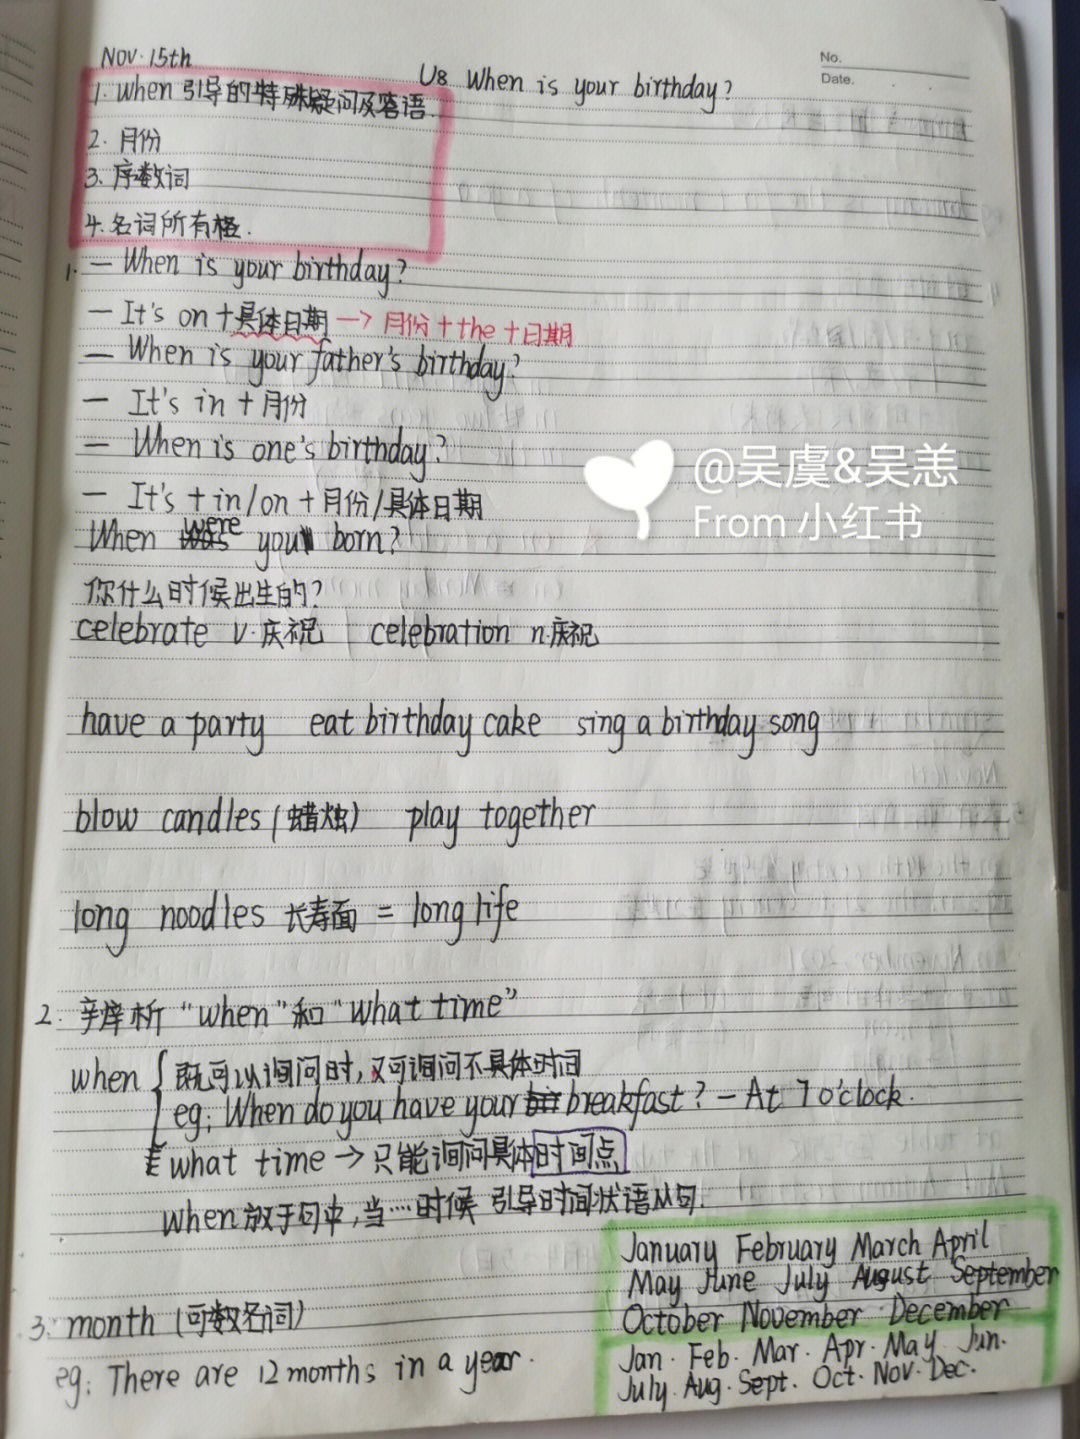 Nov. 15th
No.
Date.
U8 When is your birthday?
1. when 引导的特殊疑问及答语.
2. 月份
3. 序数词
4. 名词所有格.
1. — When is your birthday?
— It's on + 具体日期 → 月份 + the + 日期
— When is your father's birthday?
— It's in + 月份
— When is one's birthday?
— It's + in/on + 月份/具体日期
When were you born?
你什么时候出生的?
celebrate v.庆祝 celebration n.庆祝
have a party eat birthday cake sing a birthday song
blow candles (蜡烛) play together
long noodles 长寿面 = long life
2. 辨析 "when" 和 "what time"
when { 既可以询问时, 又可询问不具体时间
eg: When do you have your breakfast? — At 7 o'clock.
what time → 只能询问具体时间点
when 放于句中, 当…时候 引导时间状语从句.
3. month (可数名词)
eg: There are 12 months in a year.
January February March April
May June July August September
October November December
Jan. Feb. Mar. Apr. May Jun.
July. Aug. Sept. Oct. Nov. Dec.
@吴虞&吴恙
From 小红书